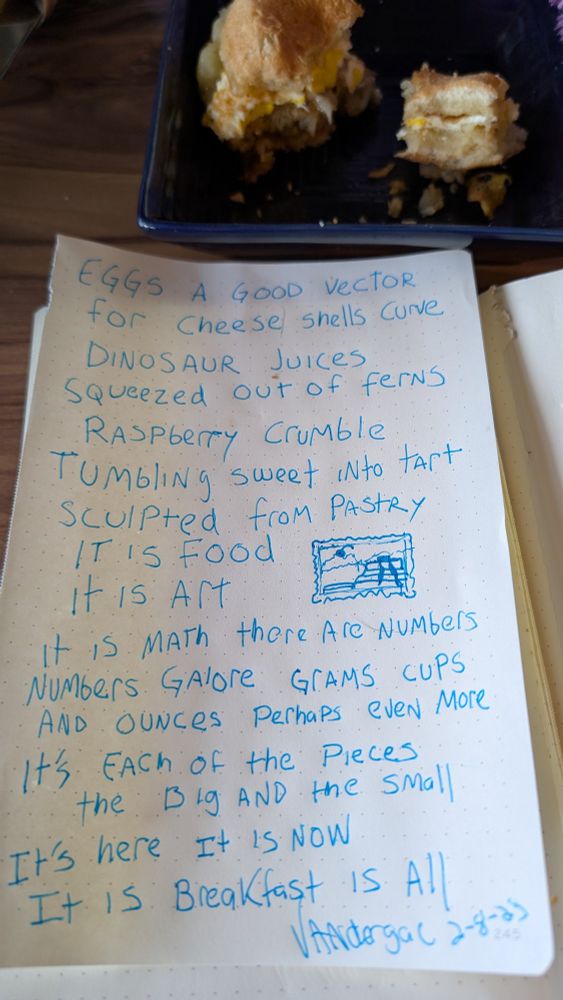 EGGS A GOOD VECTOR
for cheese shells curve
DINOSAUR JUICES
SQUEEZED OUT OF FERNS
RASPberry Crumble
TUMBLING sweet INto tArt
SCULPTED from PASTRY
IT IS FOOD
It IS Art
It IS MATH there Are NUMBERS
NUMBERS GAlore GrAMS CUPS
AND OUNCES Perhaps even More
It's EACH of the Pieces
the BIg AND the SMAll
It's here It IS NOW
It IS BreAkfast IS All
2-8-25
245